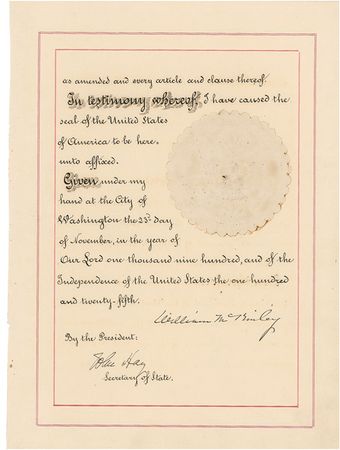 as amended and every article and clause thereof.
In testimony whereof, I have caused the
seal of the United States
of America to be here-
unto affixed.
Given under my
hand at the City of
Washington the 23d day
of November, in the year of
Our Lord one thousand nine hundred, and of the
Independence of the United States the one hundred
and twenty-fifth.
William McKinley
By the President:
John Hay
Secretary of State.